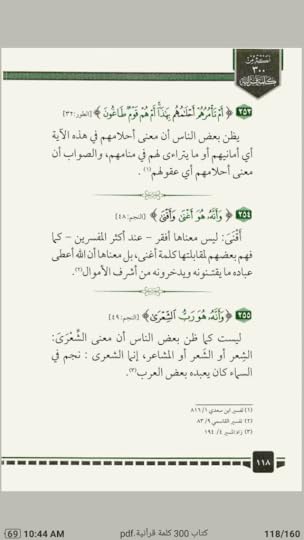 أكثر من
٣٠٠
كلمة قرآنية
٢٥٣ ﴿ أَمْ تَأْمُرُهُمْ أَحْلَامُهُم بِهَٰذَا أَمْ هُمْ قَوْمٌ طَاغُونَ ﴾ [الطور:٣٢]
يظن بعض الناس أن معنى أحلامهم في هذه الآية
أي أمانيهم أو ما يتراءى لهم في منامهم، والصواب أن
معنى أحلامهم أي عقولهم(١).
٢٥٤ ﴿ وَأَنَّهُ هُوَ أَغْنَىٰ وَأَقْنَىٰ ﴾ [النجم:٤٨]
أَقْنَىٰ: ليس معناها أفقر – عند أكثر المفسرين – كما
فهم بعضهم لمقابلتها كلمة أغنى، بل معناها أن الله أعطى
عباده ما يقتنونه ويدخرونه من أشرف الأموال(٢).
٢٥٥ ﴿ وَأَنَّهُ هُوَ رَبُّ الشِّعْرَىٰ ﴾ [النجم:٤٩]
ليست كما ظن بعض الناس أن معنى الشِّعْرَىٰ:
الشِعر أو الشَعر أو المشاعر، إنما الشعرى : نجم في
السماء كان يعبده بعض العرب(٣).
(١) تفسير ابن سعدي ٨١٦/١
(٢) تفسير القاسمي ٨٣/٩
(٣) زاد المسير ١٩٤/٤
١١٨
69 10:44 AM
كتاب 300 كلمة قرآنية.pdf
118/160